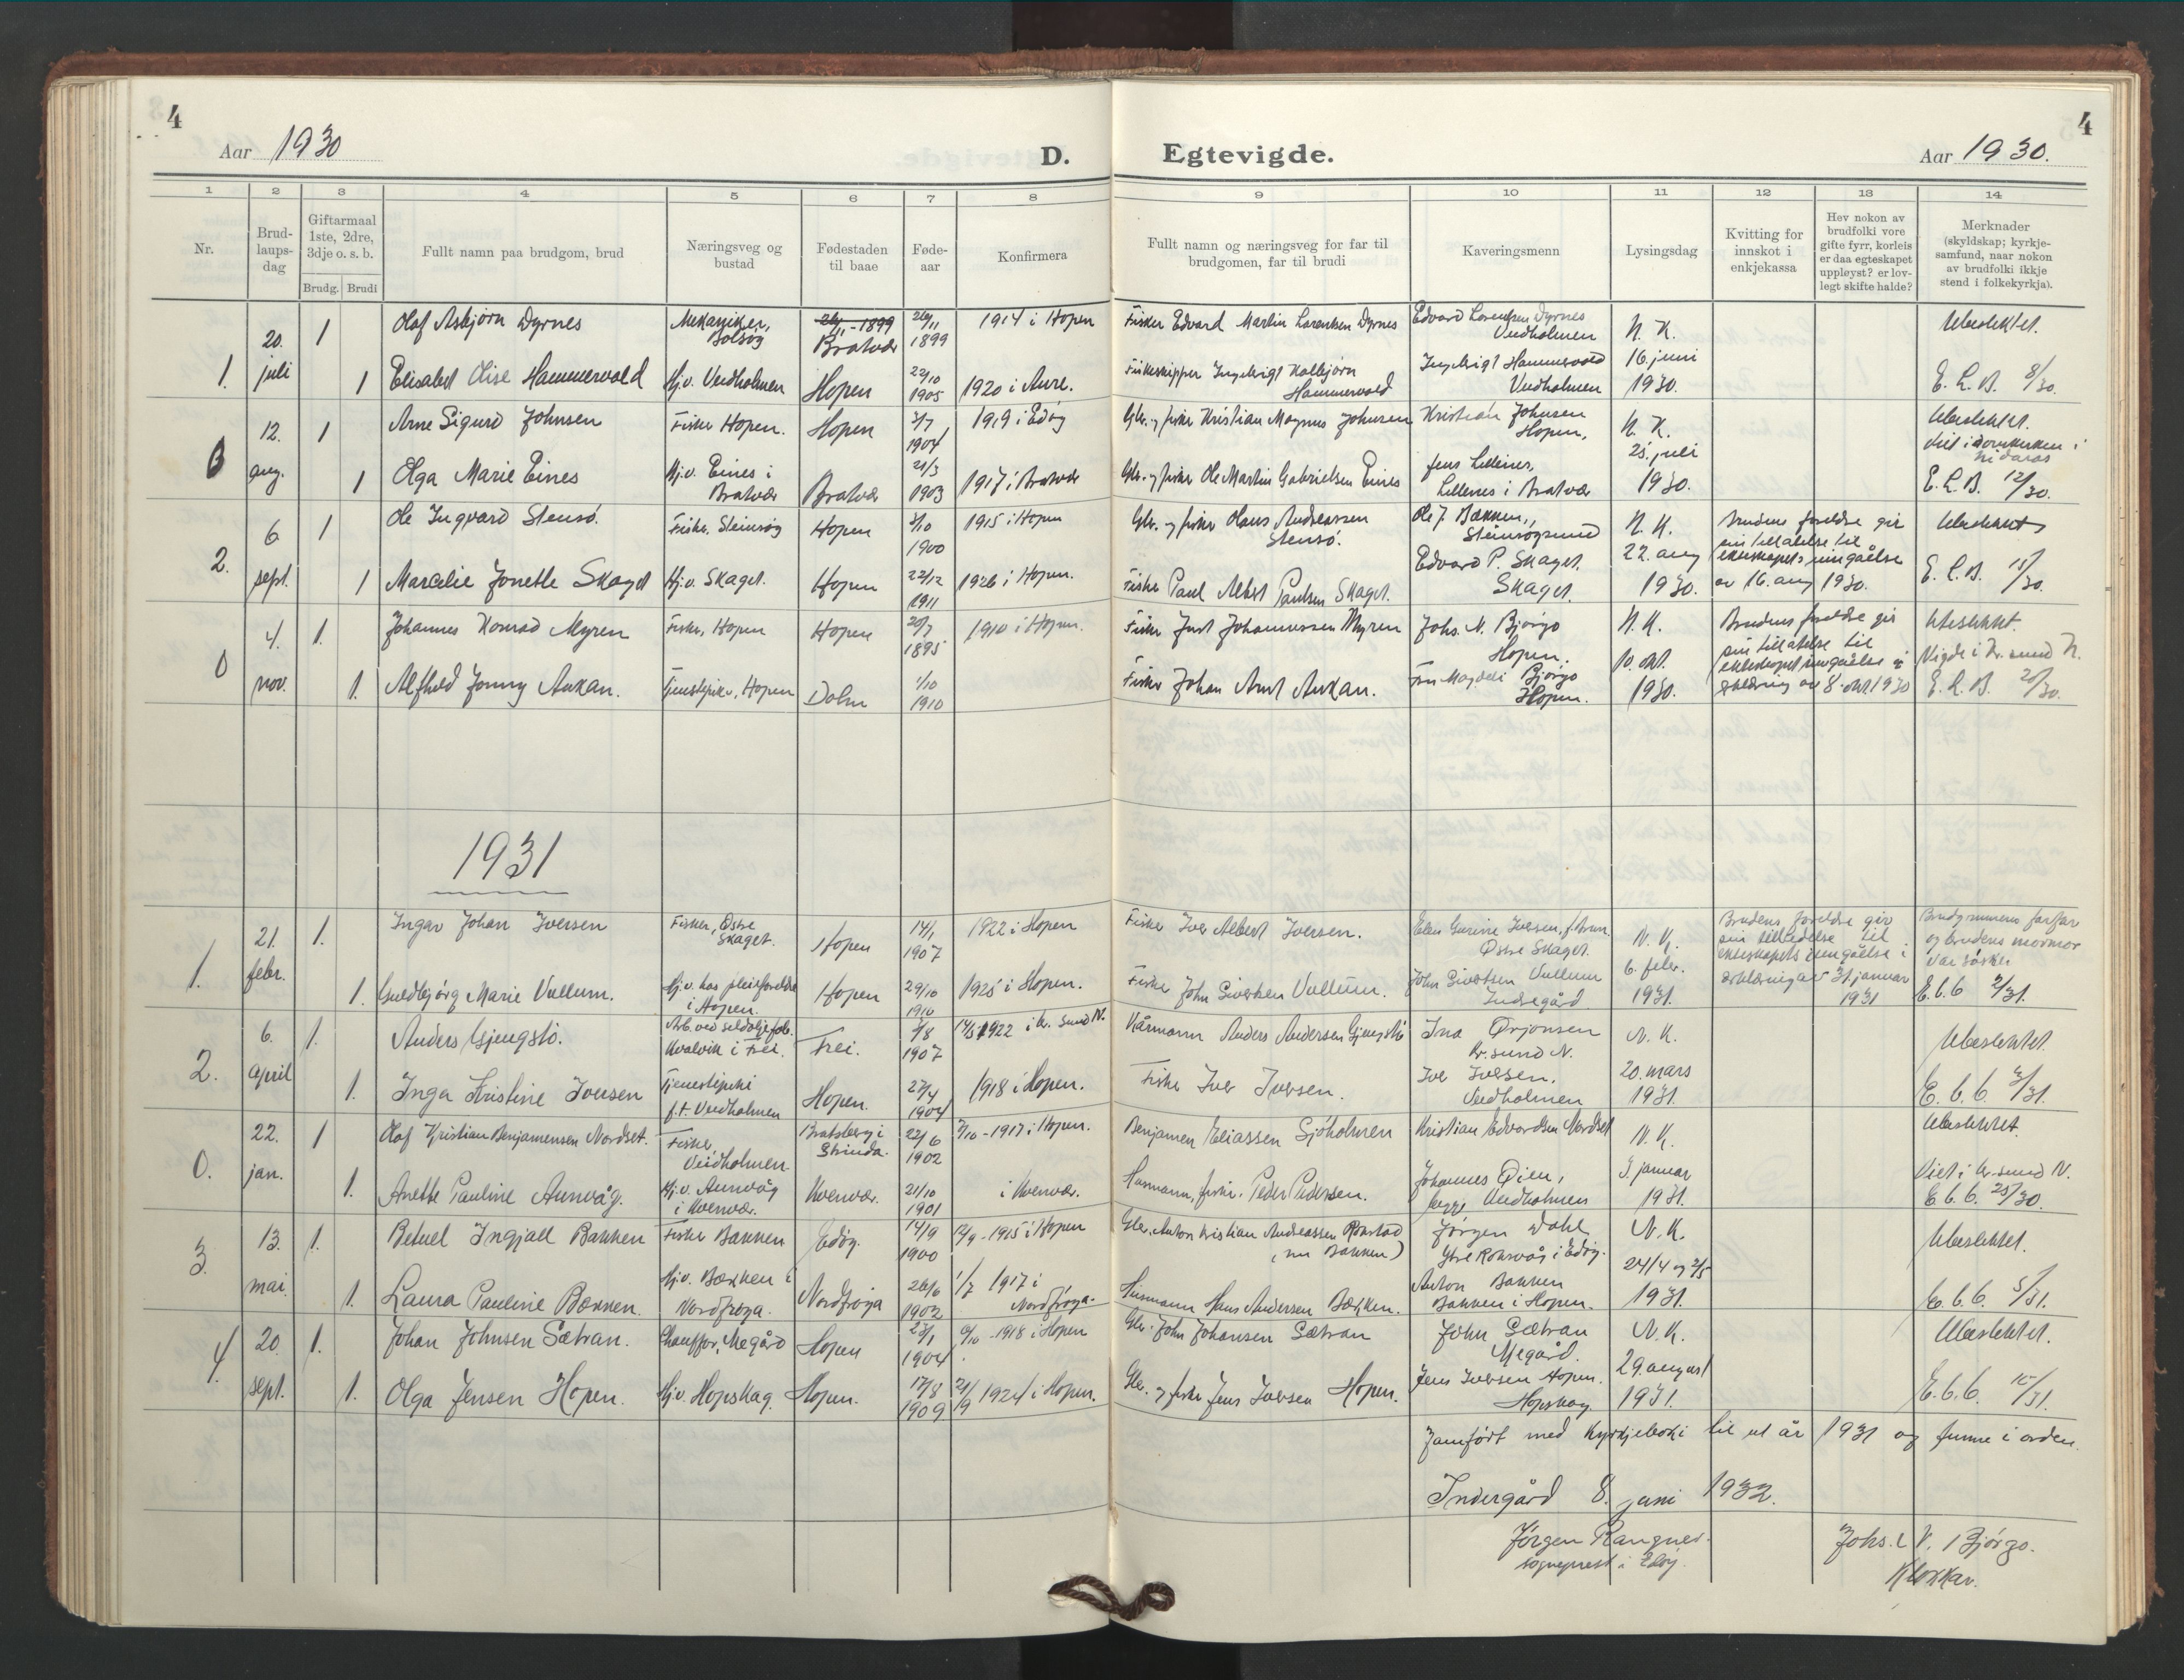 4
Aar 1930
D.
1 2 3 4 5 6 7 8
Nr.
Brud-
laups-
dag
Giftarmaal
1ste, 2dre,
3dje o. s. b.
Brudg. Brudi
Fullt namn paa brudgom, brud
Næringsveg og
bustad
Fødestaden
til baae
Føde-
aar
Konfirmera
1. 20. juli
1 Olaf Asbjørn Dyrnes Mekaniker, Bolsøy 26/11-1899 Bratvær 26/11 1899 1914 i Hopen
1 Elisabet Olise Hammervold Hj.v. Veidholmen Hopen 22/10 1905 1920 i Aure.
0 12. aug.
1 Arne Sigurd Johnsen Fisker Hopen. Hopen 3/7 1904 1919 i Edøy
1 Olga Marie Eines Hj.v. Eines i Bratvær Bratvær 21/3 1903 1917 i Bratvær
2. 6 sept.
1 Ole Ingvard Stensø. Fisker. Steinsøy Hopen 3/10 1900 1915 i Hopen
1 Marcelie Jonette Skaget Hj.v. Skaget. Hopen 22/12 1911 1926 i Hopen.
0 4. nov.
1. Johannes Konrad Myren Fisker, Hopen Hopen 20/7 1895 1910 i Hopen.
1. Alfhild Jonny Aukan. Tjenestpike, Hopen Dolm 1/10 1910
1931
1. 21. febr.
1. Ingar Johan Iversen Fisker, Østre Skaget. Hopen 14/1 1907 1922 i Hopen
1. Guldbjørg Marie Vullum. Hj.v. hos pleieforeldre i Hopen. Hopen 29/10 1910 1925 i Hopen.
2. 6. april
1. Anders Gjengstø. Arb. ved sildoljefab. Kvalvik i Frei. Frei. 7/8 1907 1922 i Kr. sund N.
1. Inga Kristine Iversen Tjenestpike f.t. Veidholmen Hopen. 27/4 1904 1918 i Hopen.
0. 22. jan.
1 Olaf Kristian Benjamensen Nordset. Fisker, Veidholmen Bratsberg i Strinda. 22/6 1902 7/10 - 1917 i Hopen.
1. Anette Pauline Aunvåg. Hj.v. Aunvåg i Kvenvær. Kvenvær. 21/10 1901 i Kvenvær.
3. 13. mai.
1. Betuel Ingjall Bakken Fisker Bakken Edøy. 14/9 1900 12/9 - 1915 i Hopen
1. Laura Pauline Bækken. Hj.v. Bækken i Nordfrøya. Nordfrøya 26/6 1902 1/7 1917 i Nordfrøya.
4. 20. sept.
1. Johan Johnsen Sætran. Chauffør, Megård Hopen 23/1 1904 6/10 - 1918 i Hopen
1. Olga Jensen Hopen. Hj.v. Hopskag. Hopen. 17/8 1909 21/9 1924 i Hopen.
Egtevigde.
Aar 1930.
4
9 10 11 12 13 14
Fullt namn og næringsveg for far til
brudgomen, far til brudi
Kaveringsmenn
Lysingsdag
Kvitting for
innskot i
enkjekassa
Hev nokon av
brudfolki vore
gifte fyrr, korleis
er daa egteskapet
uppløyst? er lov-
legt skifte halde?
Merknader
(skyldskap; kyrkje-
samfund, naar nokon
av brudfolki ikkje
stend i folkekyrkja).
Fisker Edvard Martin Lorentsen Dyrnes Edvard Lorentsen Dyrnes Veidholmen N. K. Ubeslektet.
Fiskeskipper Ingebrigt Kolbjørn Hammervold Ingebrigt Hammervold Veidholmen 16. juni 1930. E. L. B. 8/30.
Gbr. og fisker Kristian Magnus Johnsen Kristian Johnsen Hopen, N. K. Ubeslektet. Viet i domkirken i Nidaros
Gbr. og fisker Ole Martin Gabrielsen Eines Jens Lillenes, Lillenes i Bratvær 25. juli 1930. E. L. B. 12/30.
Gbr. og fisker Hans Andreassen Stensø. Ole J. Bakken, Steinsøysund N. K. Brudens foreldre gir sin tillatelse til ekteskapets inngåelse av 16. aug 1930. Ubeslektet
Fisker Paul Albert Paulsen Skaget. Edvard P. Skaget. Skaget. 22. aug 1930. E. L. B. 15/30.
Fisker Just Johannessen Myren Johs. N. Bjørgo Hopen. N. K. Brudens foreldre gir sin tillatelse til ekteskapets inngåelse i erklæring av 8. okt. 1930 Ubeslektet. Vigde i Kr. sund N.
Fisker Johan Arnt Aukan. Fru Magdeli Bjørgo Hopen. 10. okt. 1930. E. L. B. 20/30.
Fisker Iver Albert Iversen. Elen Gurine Iversen, Østre Skaget. N. K. Brudens foreldre gir sin tilladelse til ekteskapets inngåelse i erklæring av 31 januar 1931 Brudgommens farfar og brudens mormor var søsken
Fisker John Sivertsen Vullum. John Sivertsen Vullum Indregård 6. febr. 1931. E.b.6 2/31.
Kårmann Anders Andersen Gjengstø Ina Ørjonsen Kr. sund N. N. K. Ubeslektet.
Fisker Iver Iversen. Iver Iversen. Veidholmen 20. mars 1931. E. b. 6. 3/31.
Benjamen Eliassen Sjøholmen Kristian Edvardsen Nordset N. K. Ubeslektet.
Husmann, fisker. Peder Pedersen. Johannes Øien, begge Veidholmen 3 januar 1931. Viet i Kr. sund N. E. b. 6. 25/30.
Gbr. Anton Kristian Andreassen Rokstad (nu Bakken) Jørgen Dahle, Ytre Roksvåg i Edøy. N. K. Ubeslektet.
Husmann Hans Andersen Bækken. Anton Bakken Bakken i Hopen. 24/4 og 2/5 1931. E. b. 6. 5/31.
Gbr. John Johansen Sætran John Sætran Megård. N. K. Ubeslektet.
Gbr. og fisker Jens Iversen Hopen. Jens Iversen Hopen. Hopskag 29 august 1931. E. b. 6. 10/31.
Jamført med kyrkjeboki til ut år 1931 og funne i orden.
Indergård 8. juni 1932.
Jørgen Rangnes.
sogneprest i Edøy.
Johs. N. Bjørgo.
Klokkar.